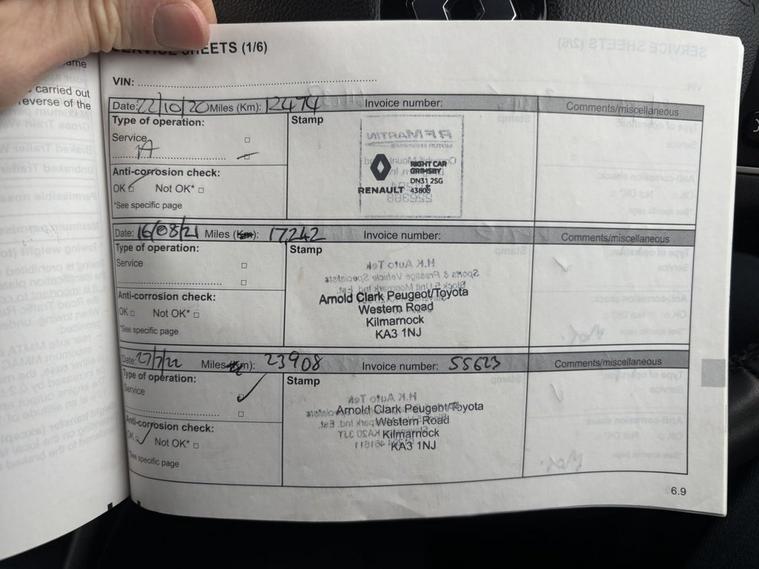 SERVICE SHEETS (1/6)
ame
carried out
everse of the
VIN:
Date: 22/10/20 Miles (Km): 12474 Invoice number: Comments/miscellaneous
Type of operation: Stamp
Service
A
Anti-corrosion check:
OK Not OK*
*See specific page
RENAULT
RIGHT CAR
GRIMSBY
DN31 2SG
Date: 16/08/21 Miles (Km): 17242 Invoice number: Comments/miscellaneous
Type of operation: Stamp
Service
Anti-corrosion check:
OK Not OK*
*See specific page
Arnold Clark Peugeot/Toyota
Western Road
Kilmarnock
KA3 1NJ
Date: 27/7/22 Miles (Km): 23908 Invoice number: 55623 Comments/miscellaneous
Type of operation: Stamp
Service
Anti-corrosion check:
OK Not OK*
*See specific page
Arnold Clark Peugeot/Toyota
Western Road
Kilmarnock
KA3 1NJ
6.9